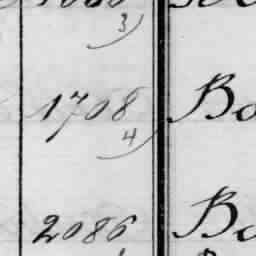 3)
1708 Bo
4)
2086 Bo